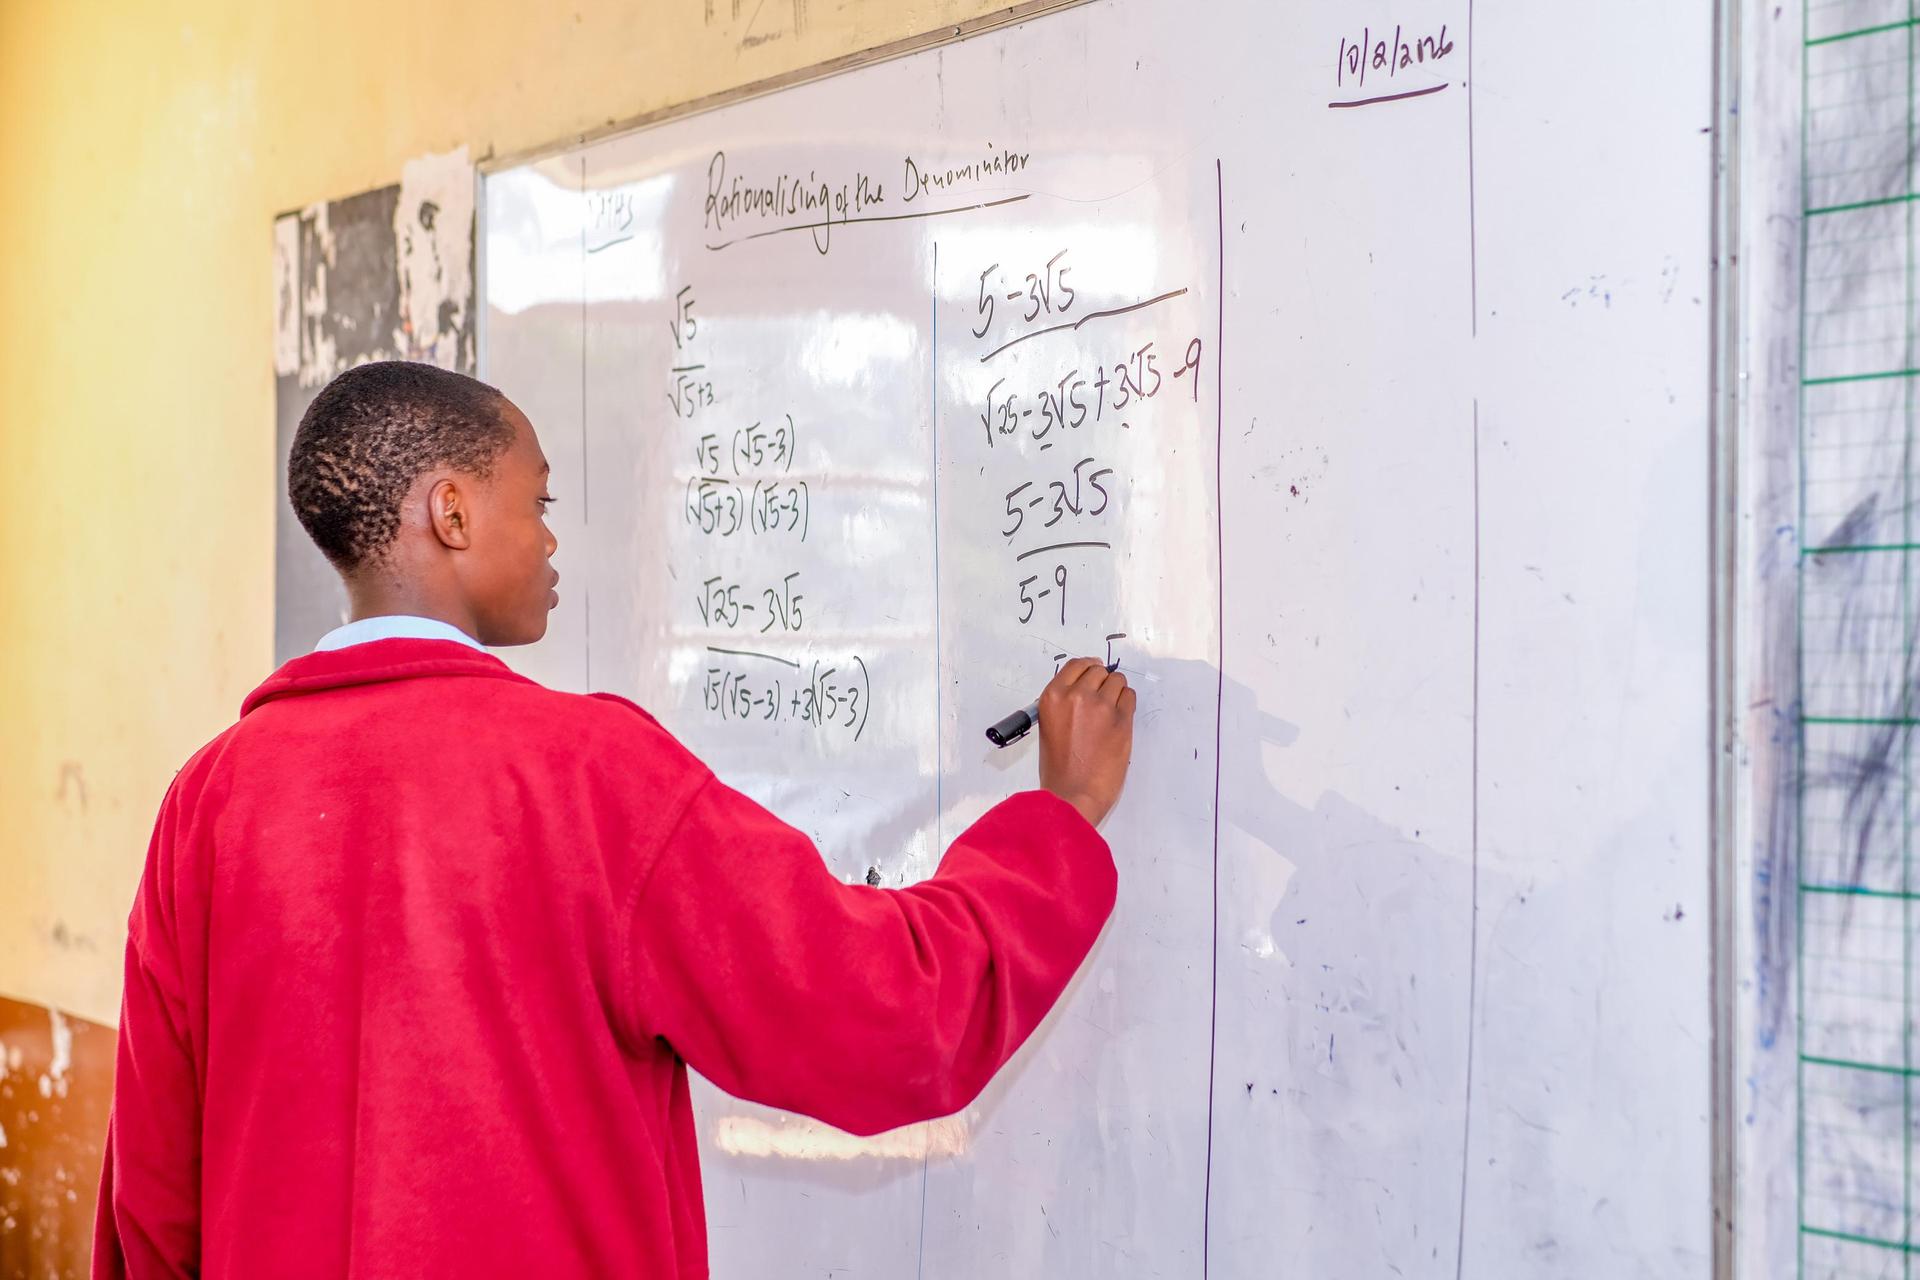 10/2/2026
Rationalising of the Denominator
√5
√5+3
√5 (√5-3)
(√5+3) (√5-3)
√25 - 3√5
√5(√5-3) + 3(√5-3)
5 - 3√5
√25 - 3√5 + 3√5 - 9
5 - 3√5
5 - 9